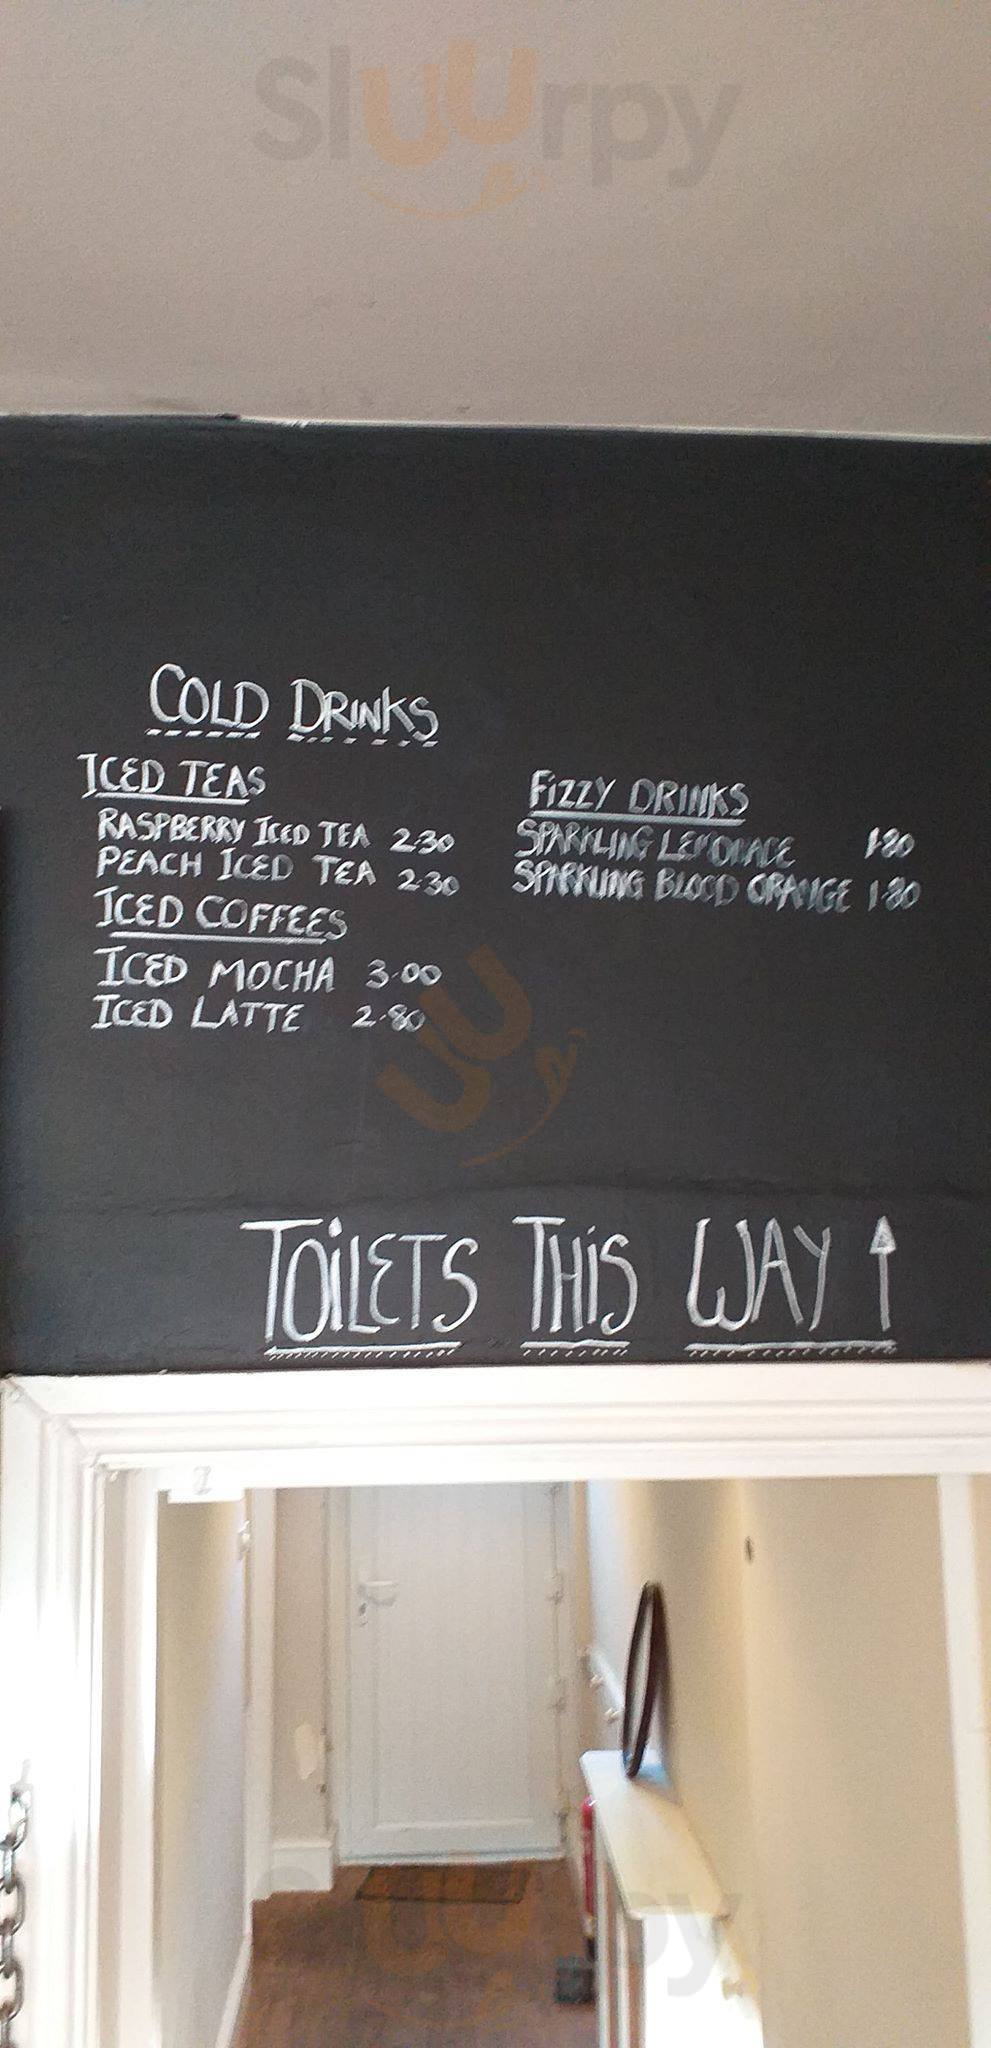 Sluurpy
COLD DRINKS
ICED TEAS
RASPBERRY ICED TEA 2.30
PEACH ICED TEA 2.30
ICED COFFEES
ICED MOCHA 3.00
ICED LATTE 2.80
FiZZY DRINKS
SPARKLING LEMONADE 1.80
SPARKLING BLOOD ORANGE 1.80
TOiLETS THiS WAY ↑
Sluurpy